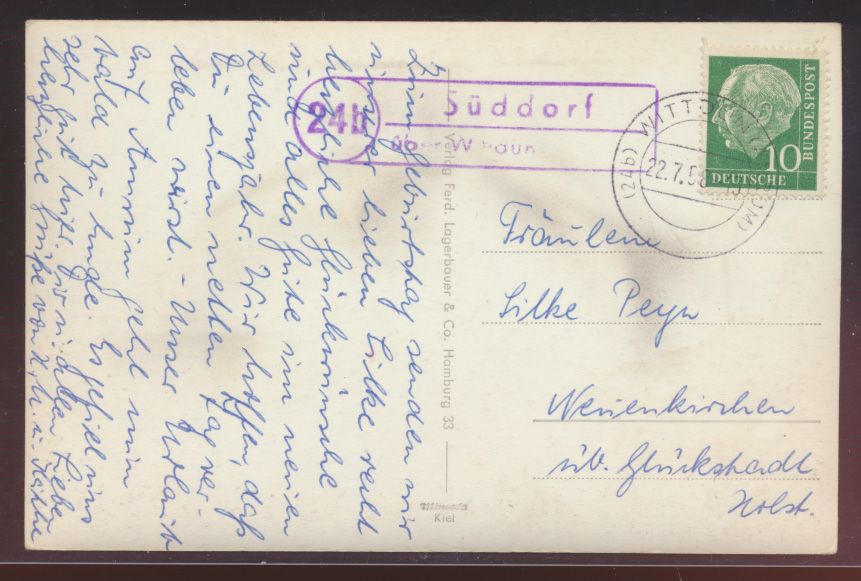 Zum Geburtstag senden wir
unserer lieben Silke recht
herzliche Glückwünsche
und alles Gute im neuen
Lebensjahr. Wir hoffen, daß
Du einen netten Tag ver-
leben wirst. - Unser Urlaub
auf Amrum geht nun
bald zu Ende. Es gefiel uns
sehr gut hier. Dir u. allen Lieben
herzliche Grüße von
24b
Süddorf
über Wittdün
(24b) WITTDÜN
22.7.58
10
DEUTSCHE
BUNDESPOST
Verlag Ferd. Lagerbauer & Co. Hamburg 33
Kiel
Fräulein
Silke Peyn
Neuenkirchen
üb. Glückstadt
Holst.